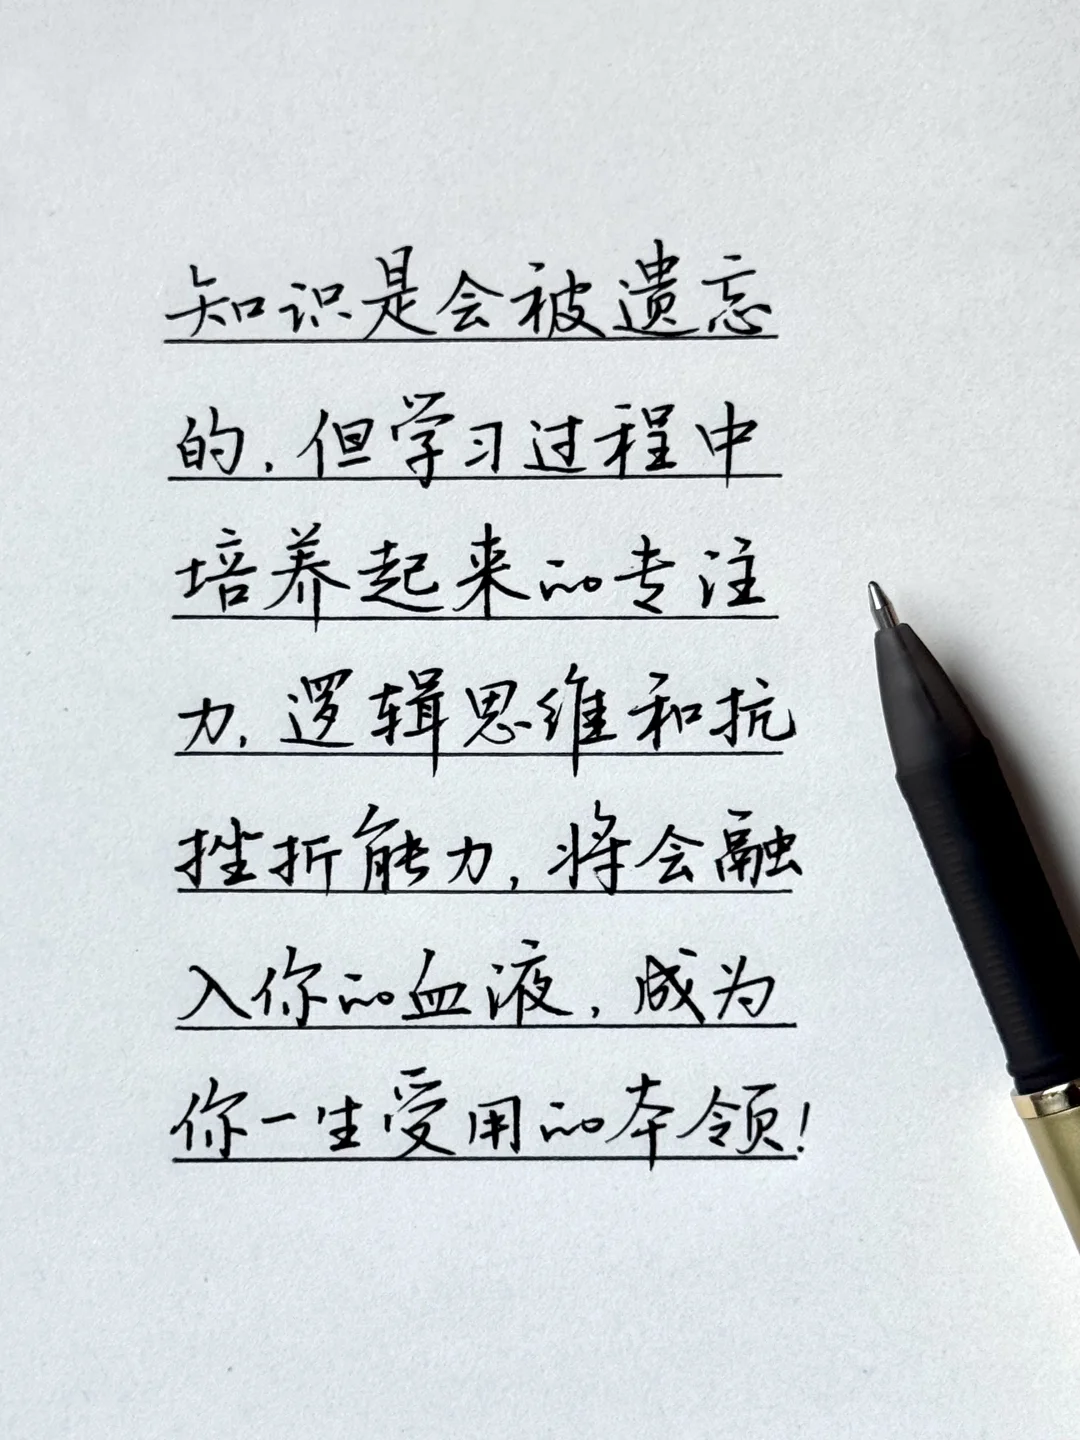 知识是会被遗忘
的,但学习过程中
培养起来的专注
力,逻辑思维和抗
挫折能力,将会融
入你的血液,成为
你一生受用的本领!